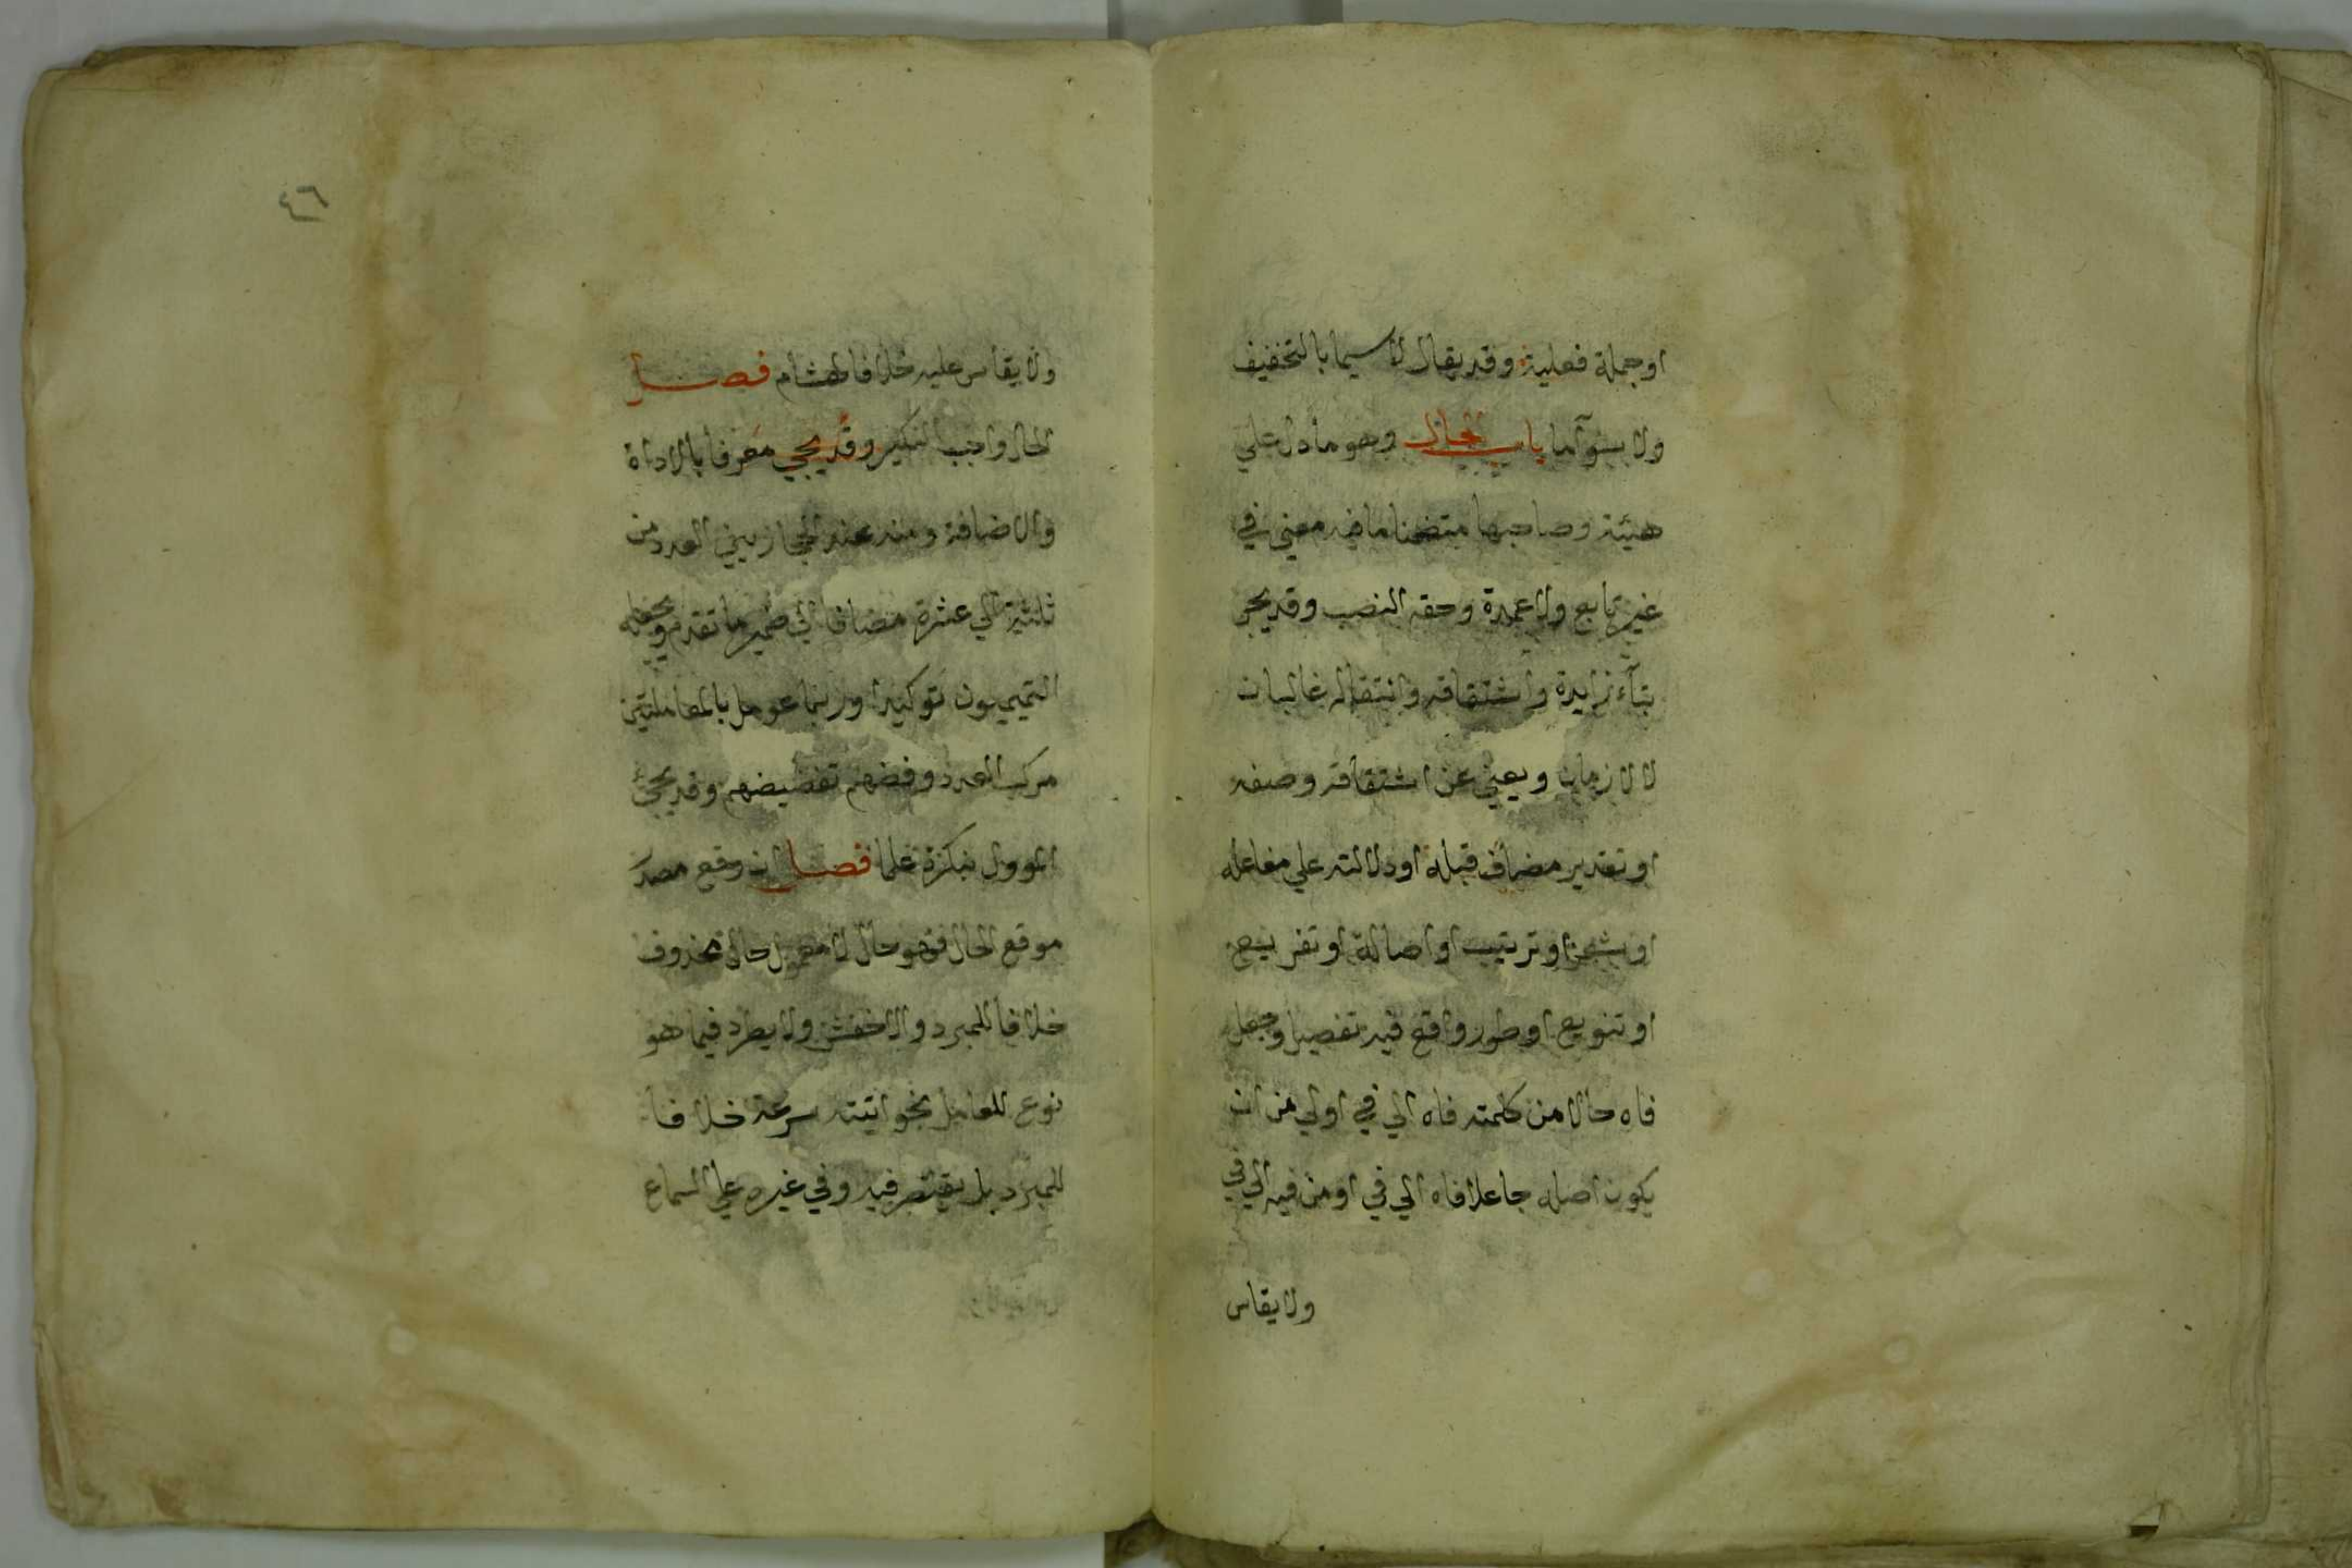 او جملة فعلية وقد يقال لا سيما بالتخفيف
ولا سوآما باب الحال وهو ما دل علي
هيئة وصاحبها متضمنا ما فيه معني في
غير تابع ولا عمدة وحقه النصب وقد يجر
بتآء زايدة واشتقاقه وانتقاله غالبان
لا لازمان ويغني عن اشتقاقه وصفه
او تقدير مضاف قبله او دلالته علي مفاعله
او سعر او ترتيب او اصالة او تفريع
او تنويع او طور واقع فيه تفضيل وجعل
فاه حالا من كلمته فاه الي في اولي من ان
يكون اصله جاعلا فاه الي في او من فيه الي في
ولا يقاس
٤٦
ولا يقاس عليه خلافا لهشام فصل
الحال واجب التنكير وقد يجي معرفا بالاداة
والاضافة ومنه عند الحجازيين العدد من
ثلثة الي عشرة مضافا الي ضمير ما تقدم ويجعله
التميميون توكيدا وربما عومل بالمعاملتين
مركب العدد وقضهم بقضيضهم وقد يجئ
المؤول بنكرة علما فصل ان وقع مصدر
موقع الحال فهو حال لا معمول حال محذوف
خلافا للمبرد والاخفش ولا يطرد فيما هو
نوع للعامل نحو اتيته سرعة خلافا
للمبرد بل يقتصر فيه وفي غيره علي السماع